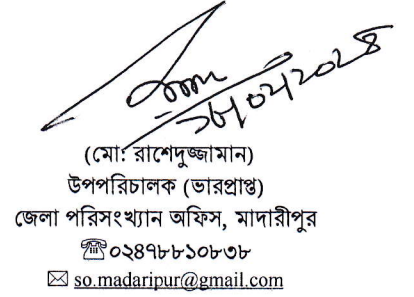 ১৮/০৭/২০২৪
(মো: রাশেদুজ্জামান)
উপপরিচালক (ভারপ্রাপ্ত)
জেলা পরিসংখ্যান অফিস, মাদারীপুর
☎০২৪৭৮৮১০৮৩৮
✉ so.madaripur@gmail.com